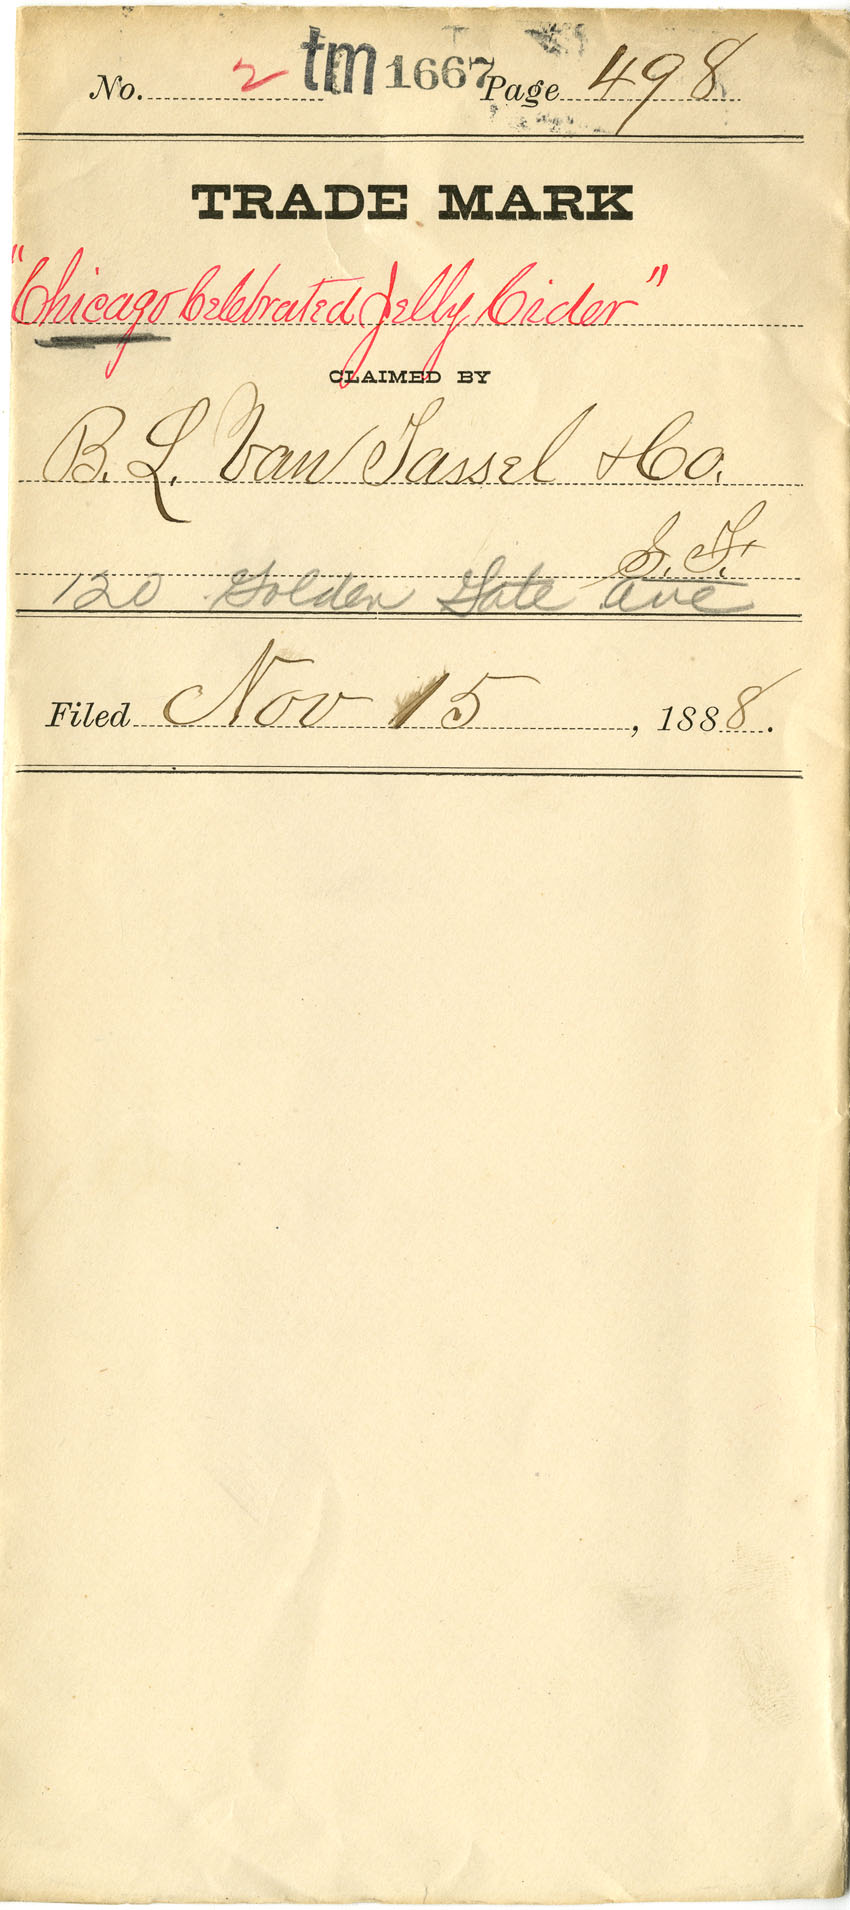 No. 2 tm 1667 Page 498
TRADE MARK
"Chicago Celebrated Jelly Cider"
CLAIMED BY
B. L. Van Tassel & Co.
S. F.
120 Golden Gate ave
Filed Nov 15, 1888.